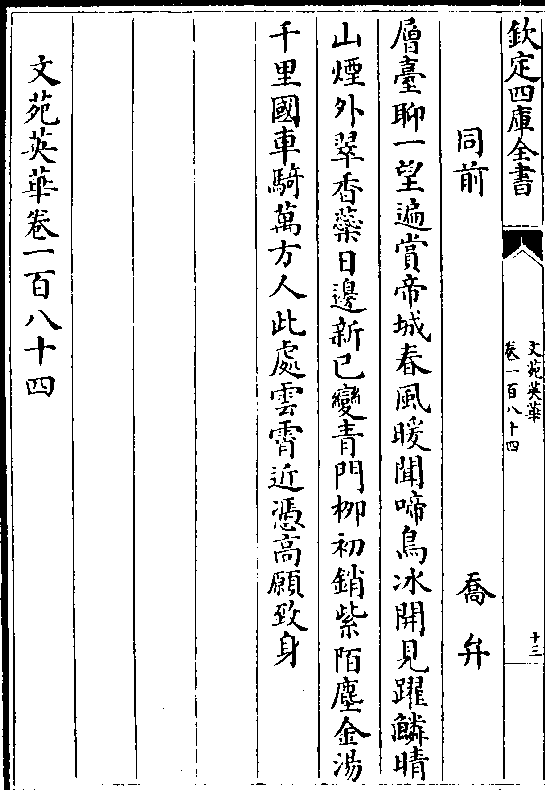 欽定四庫全書
文苑英華
卷一百八十四
十三
同前 喬弁
層臺聊一望遍賞帝城春風暖聞啼鳥冰開見躍鱗晴
山煙外翠香蘂日邊新已變青門栁初銷紫陌塵金湯
千里國車騎萬方人此處雲霄近憑高願致身
文苑英華卷一百八十四